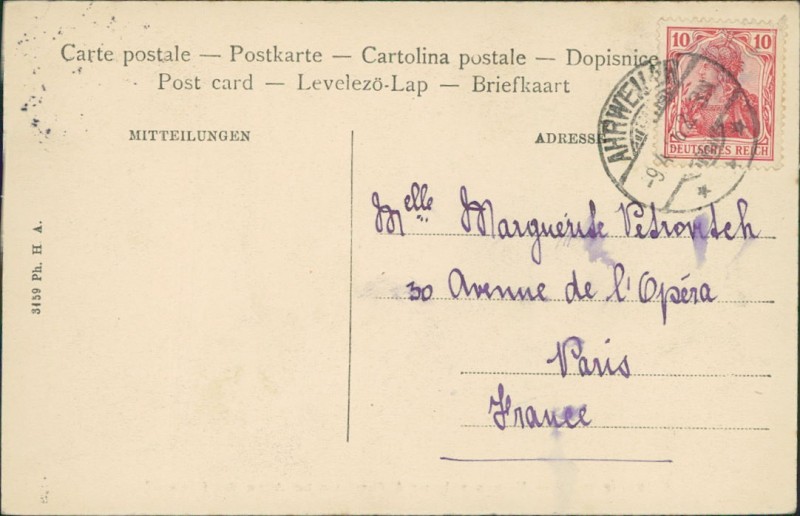 Carte postale — Postkarte — Cartolina postale — Dopisnice
Post card — Levelező-Lap — Briefkaart
10 10
DEUTSCHES REICH
AHRWEILER
MITTEILUNGEN
ADRESSE
Melle Marguérite Petrovitch
30 Avenue de l'Opéra
Paris
France
3159 Ph. H A.